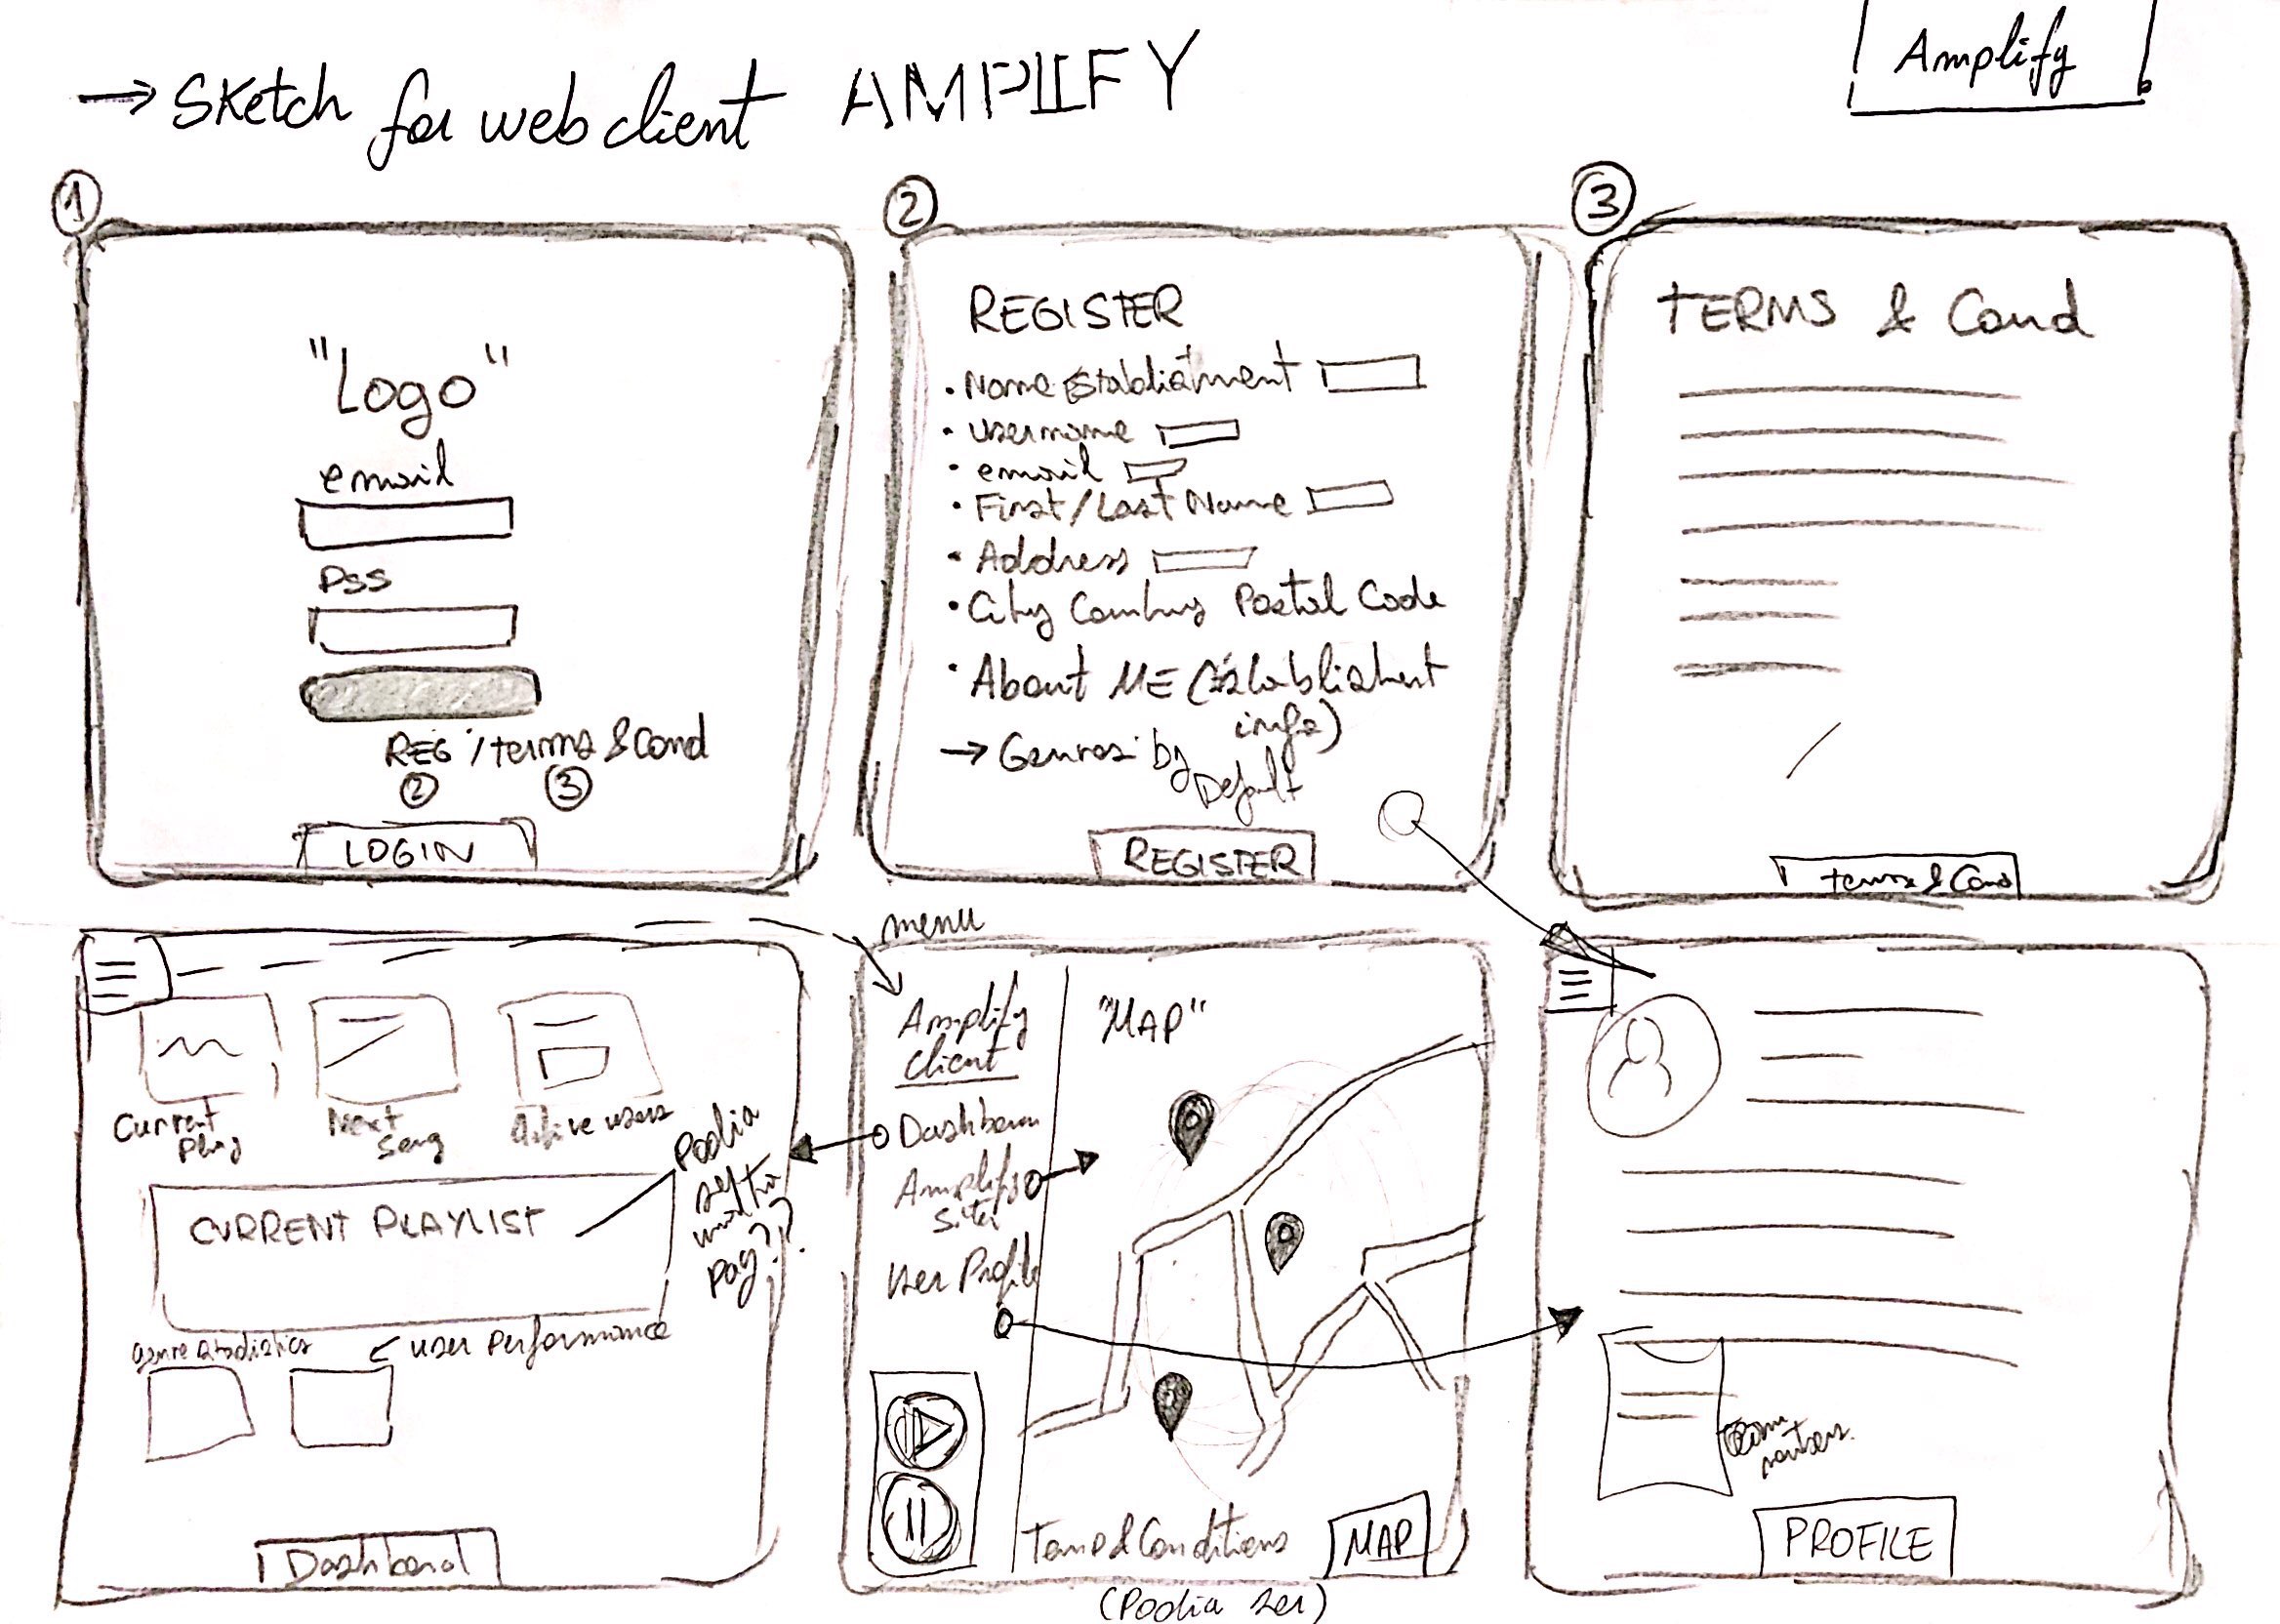 → Sketch for web client AMPLIFY
Amplify
1
"Logo"
email
Pss
REG / terms & Cond
2 3
LOGIN
2
REGISTER
• Name Establishment
• username
• email
• First/Last Name
• Address
• City Country Postal Code
• About ME (Establishment
info)
→ Genres by
Default
REGISTER
3
TERMS & Cond
Terms & Cond
Current
Play
Next
Song
Active users
CURRENT PLAYLIST
Podia
ser
otra
pag??
genre stadistics
← user performance
Dashboard
menu
Amplify
Client
Dashboard
Amplify
Sites
User Profile
"MAP"
Terms & Conditions
MAP
(Podia ser)
PROFILE